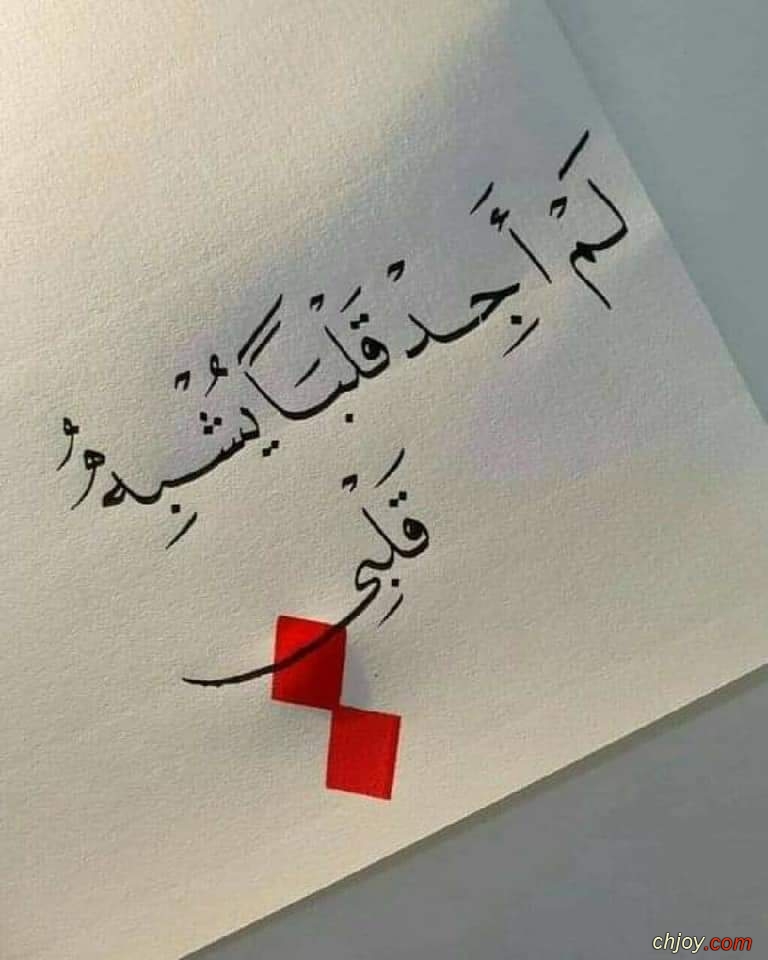 لَمْ أَجِدْ قَلْبَاً يُشْبِهُ
قَلْبِي
chjoy.com